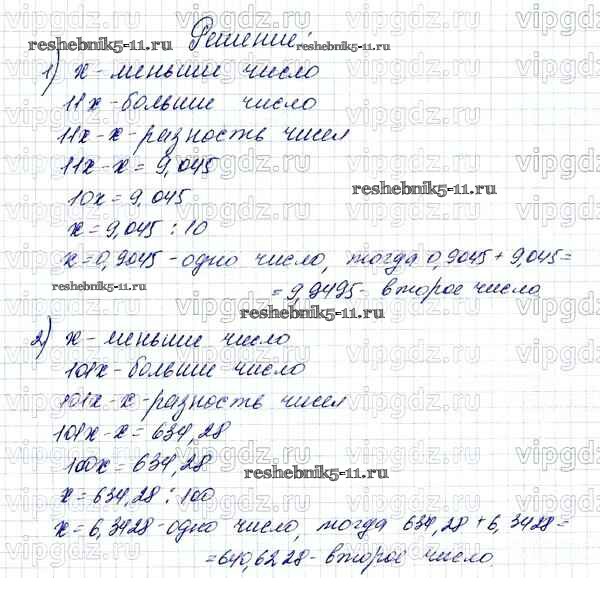 Решение:
1) x - меньше число
11x - больше число
11x - x - разность чисел
11x - x = 9,045
10x = 9,045
x = 9,045 : 10
x = 0,9045 - одно число, тогда 0,9045 + 9,045 =
= 9,9495 - второе число
2) x - меньше число
101x - больше число
101x - x - разность чисел
101x - x = 634,28
100x = 634,28
x = 634,28 : 100
x = 6,3428 - одно число, тогда 634,28 + 6,3428 =
= 640,6228 - второе число
reshebnik5-11.ru
reshebnik5-11.ru
reshebnik5-11.ru
reshebnik5-11.ru
reshebnik5-11.ru
reshebnik5-11.ru
vipgdz.ru